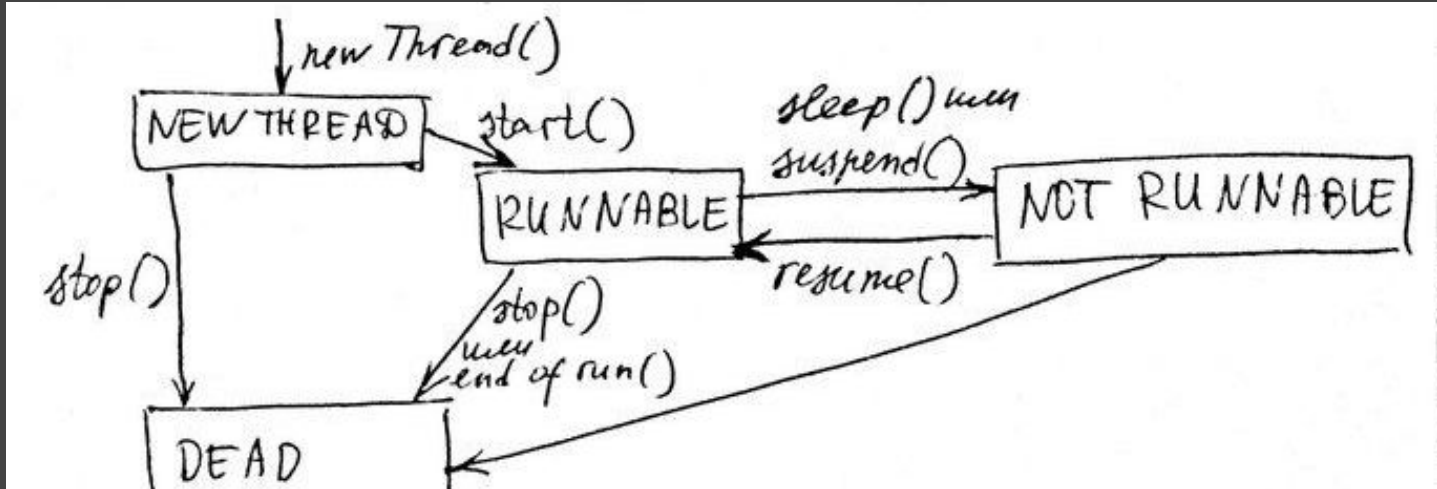 new Thread()
NEW THREAD
start()
sleep() или
suspend()
RUNNABLE
NOT RUNNABLE
resume()
stop()
stop()
или
end of run()
DEAD